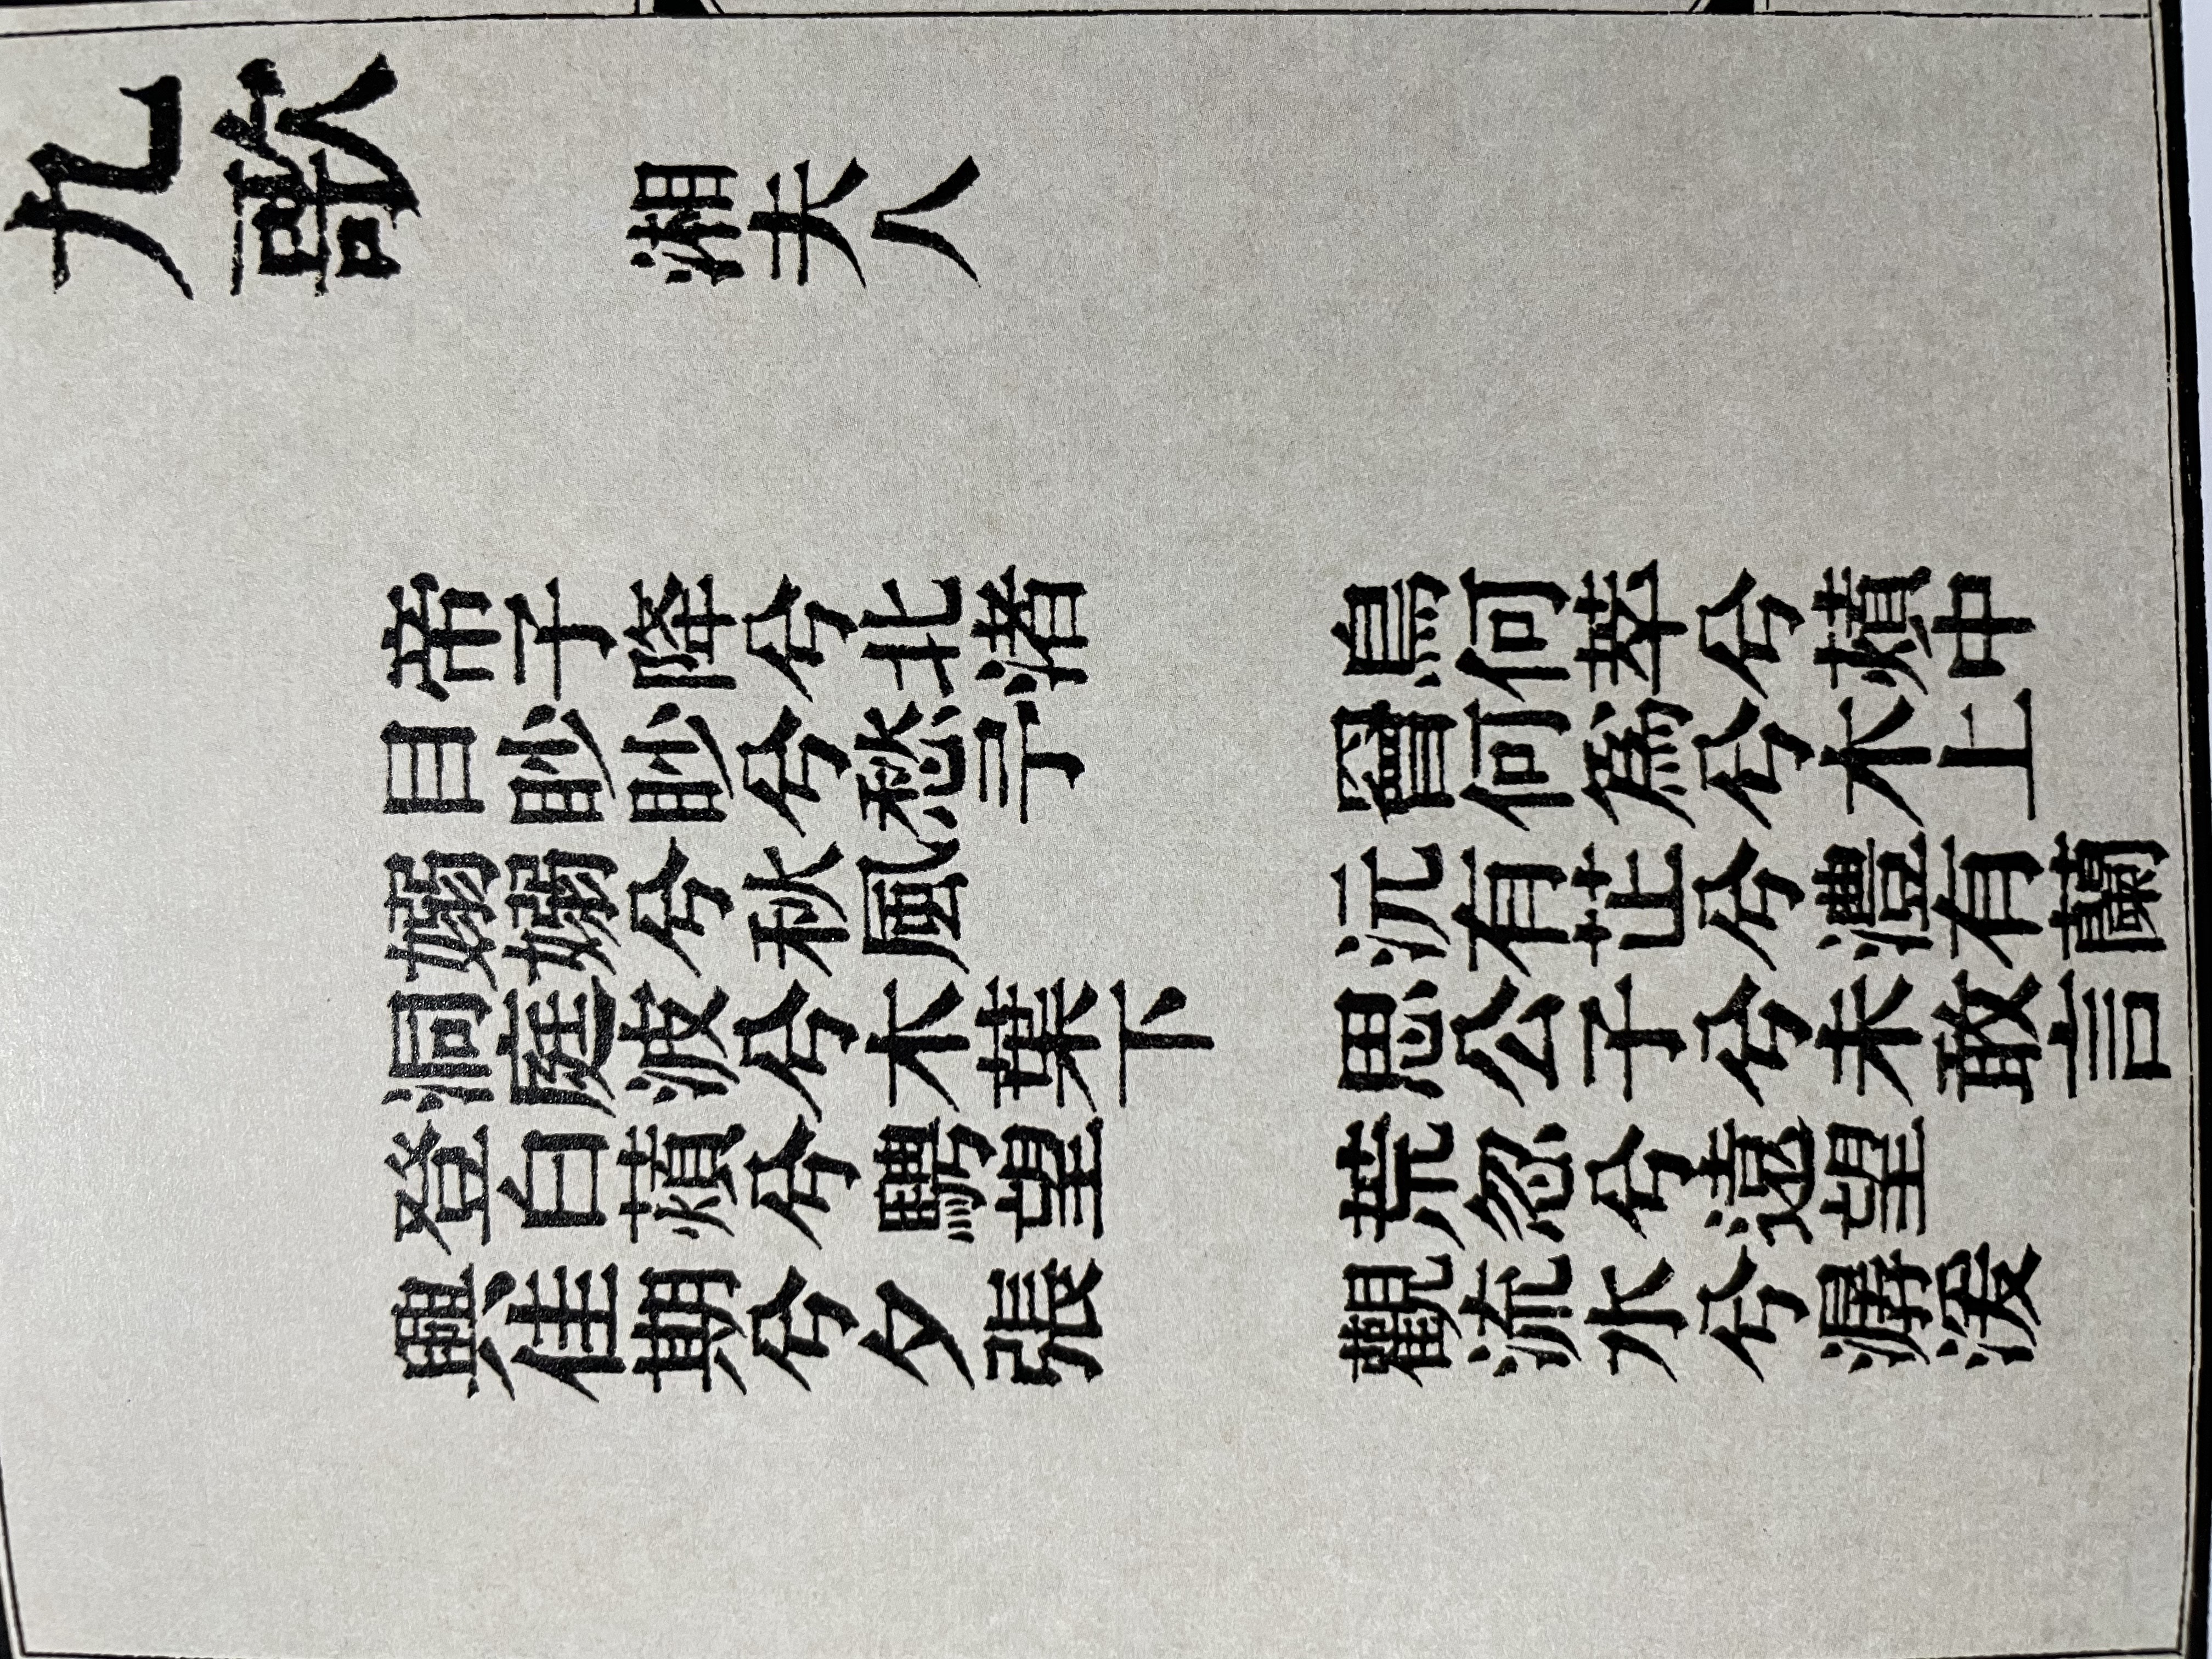 九歌
湘夫人
帝子降兮北渚
目眇眇兮愁予
嫋嫋兮秋風
洞庭波兮木葉下
登白薠兮騁望
與佳期兮夕張
鳥何萃兮蘋中
罾何為兮木上
沅有芷兮澧有蘭
思公子兮未敢言
荒忽兮遠望
觀流水兮潺湲